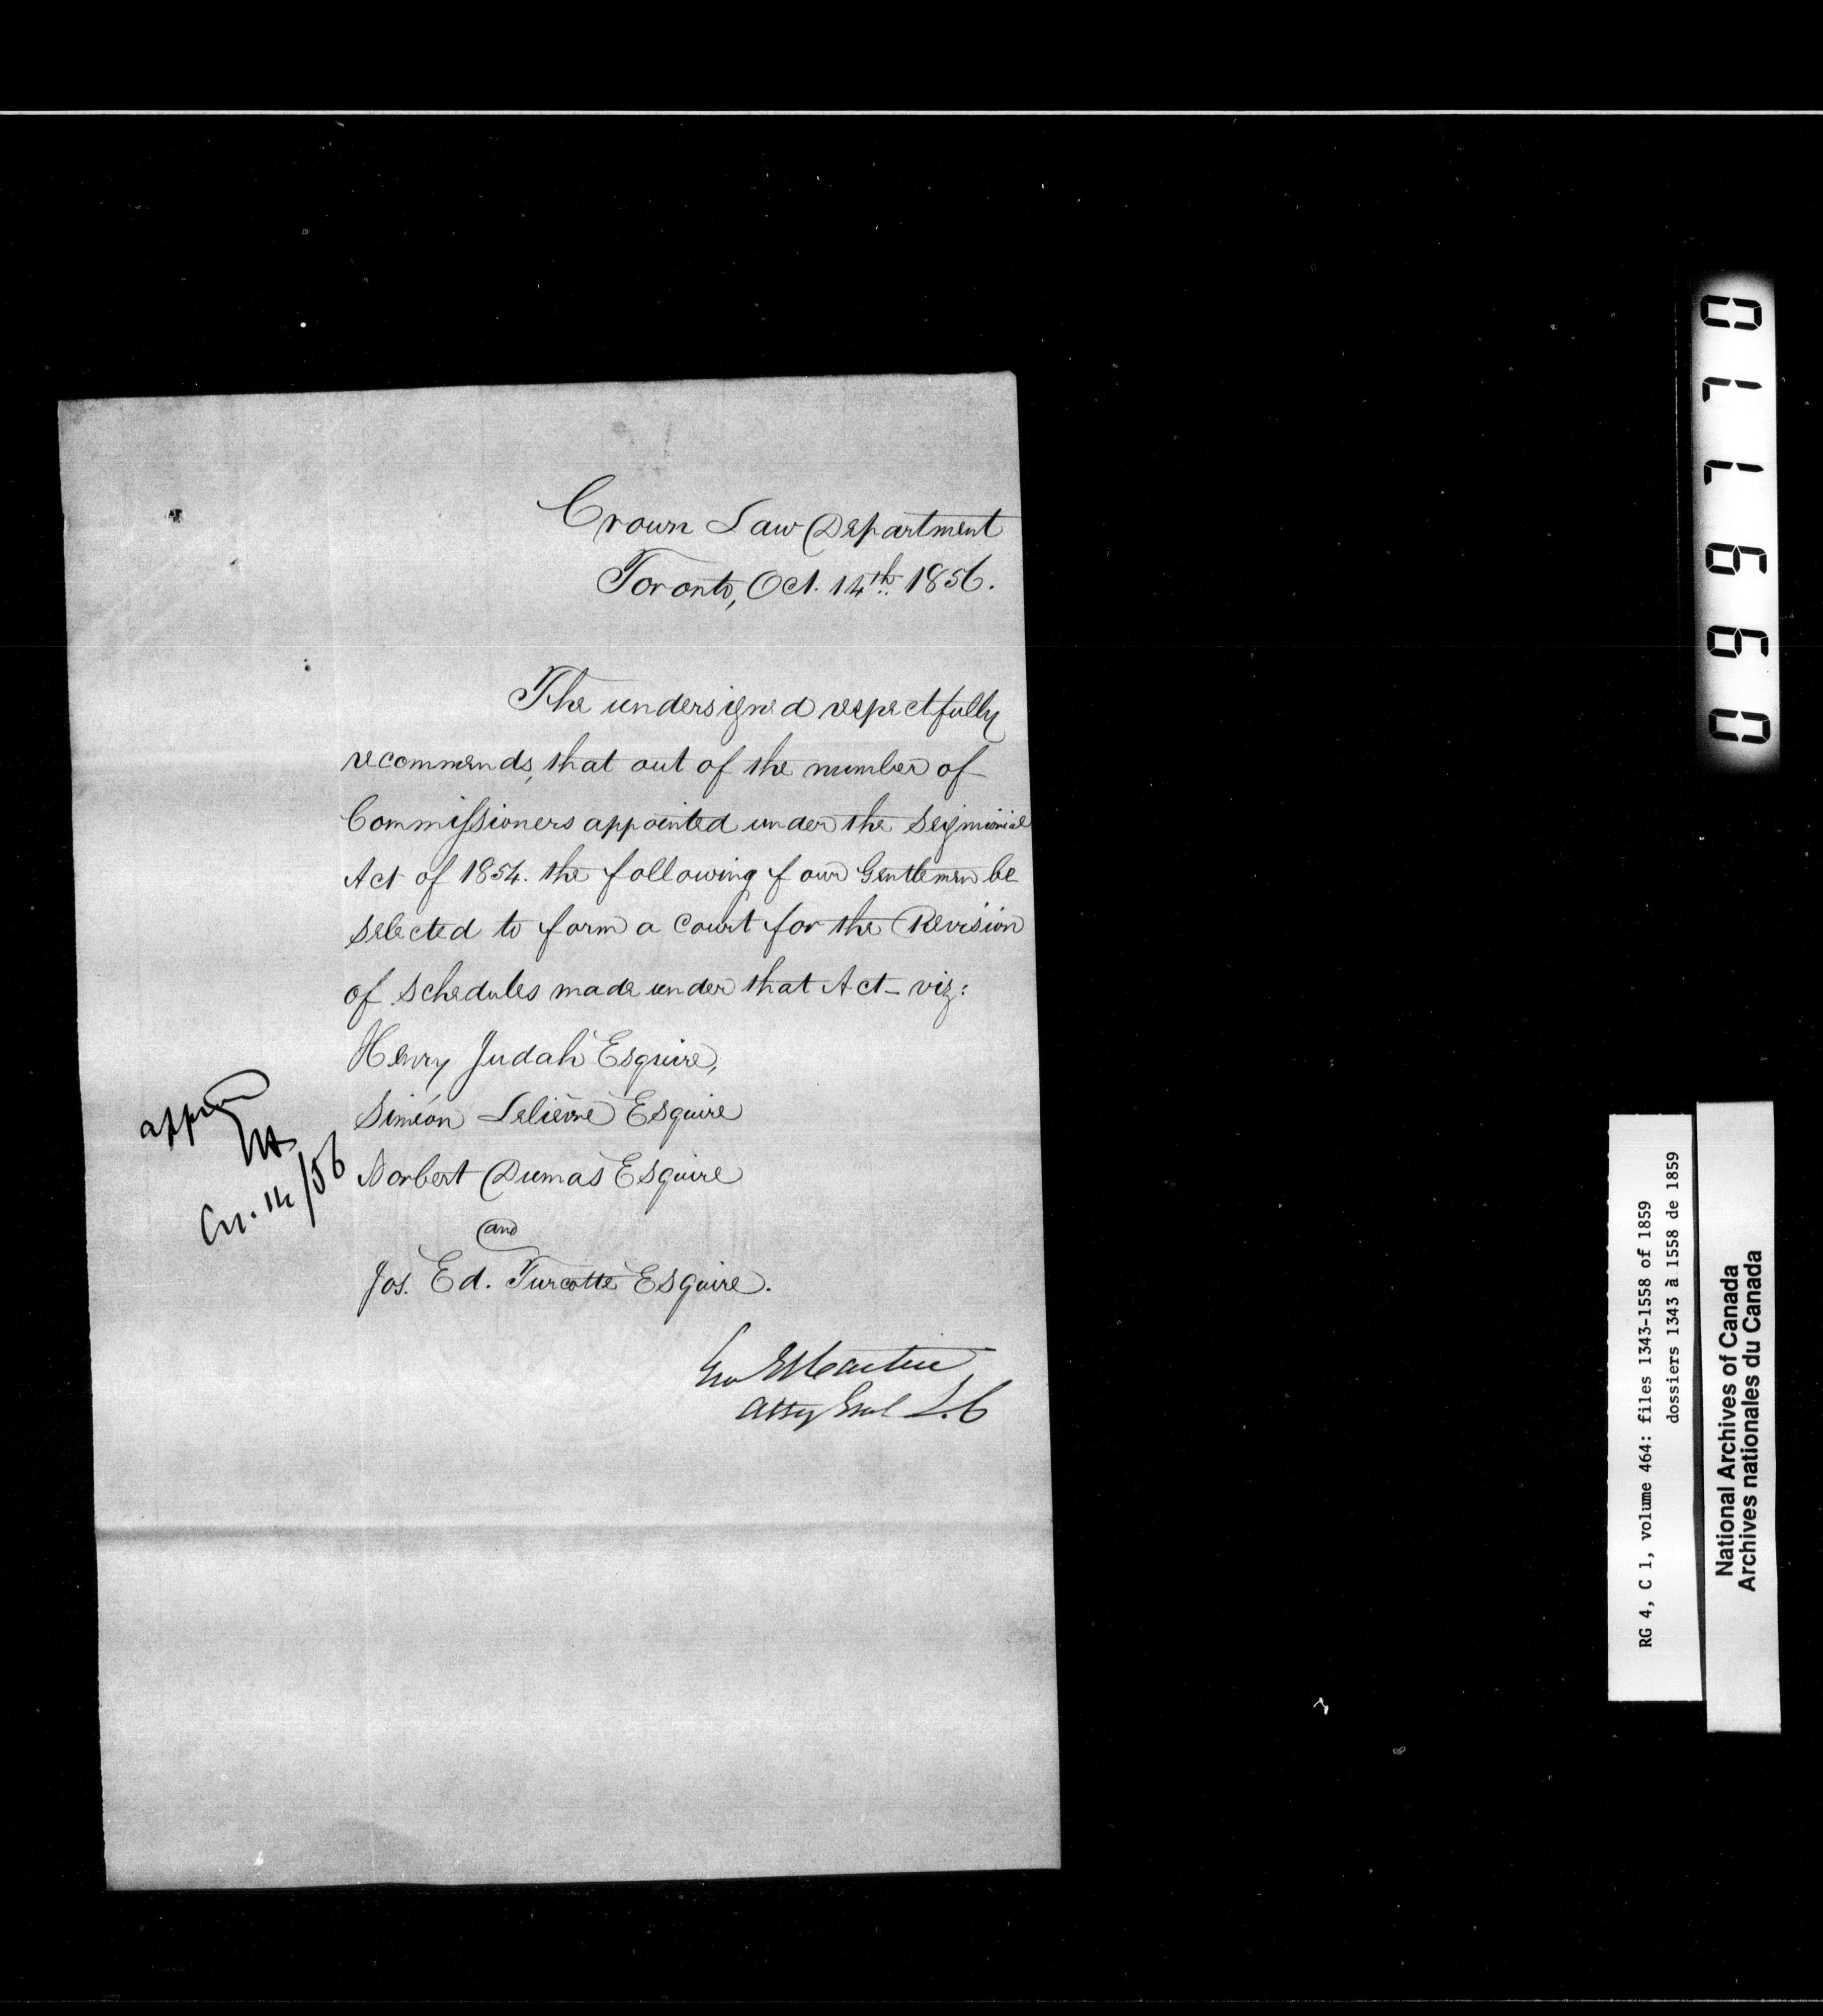 Crown Law Department
Toronto, Oct. 14th. 1856.
The undersigned respectfully
recommends, that out of the number of
Commissioners appointed under the Seigniorial
Act of 1854. the following four Gentlemen be
selected to form a Court for the Revision
of Schedules made under that Act - viz:
Henry Judah Esquire,
Siméon Lelièvre Esquire
Norbert Dumas Esquire
and
Jos. Ed. Turcotte Esquire.
Geo E Cartier
Atty Genl L.C
14/56
RG 4, C 1, volume 464: files 1343-1558 of 1859
dossiers 1343 à 1558 de 1859
National Archives of Canada
Archives nationales du Canada